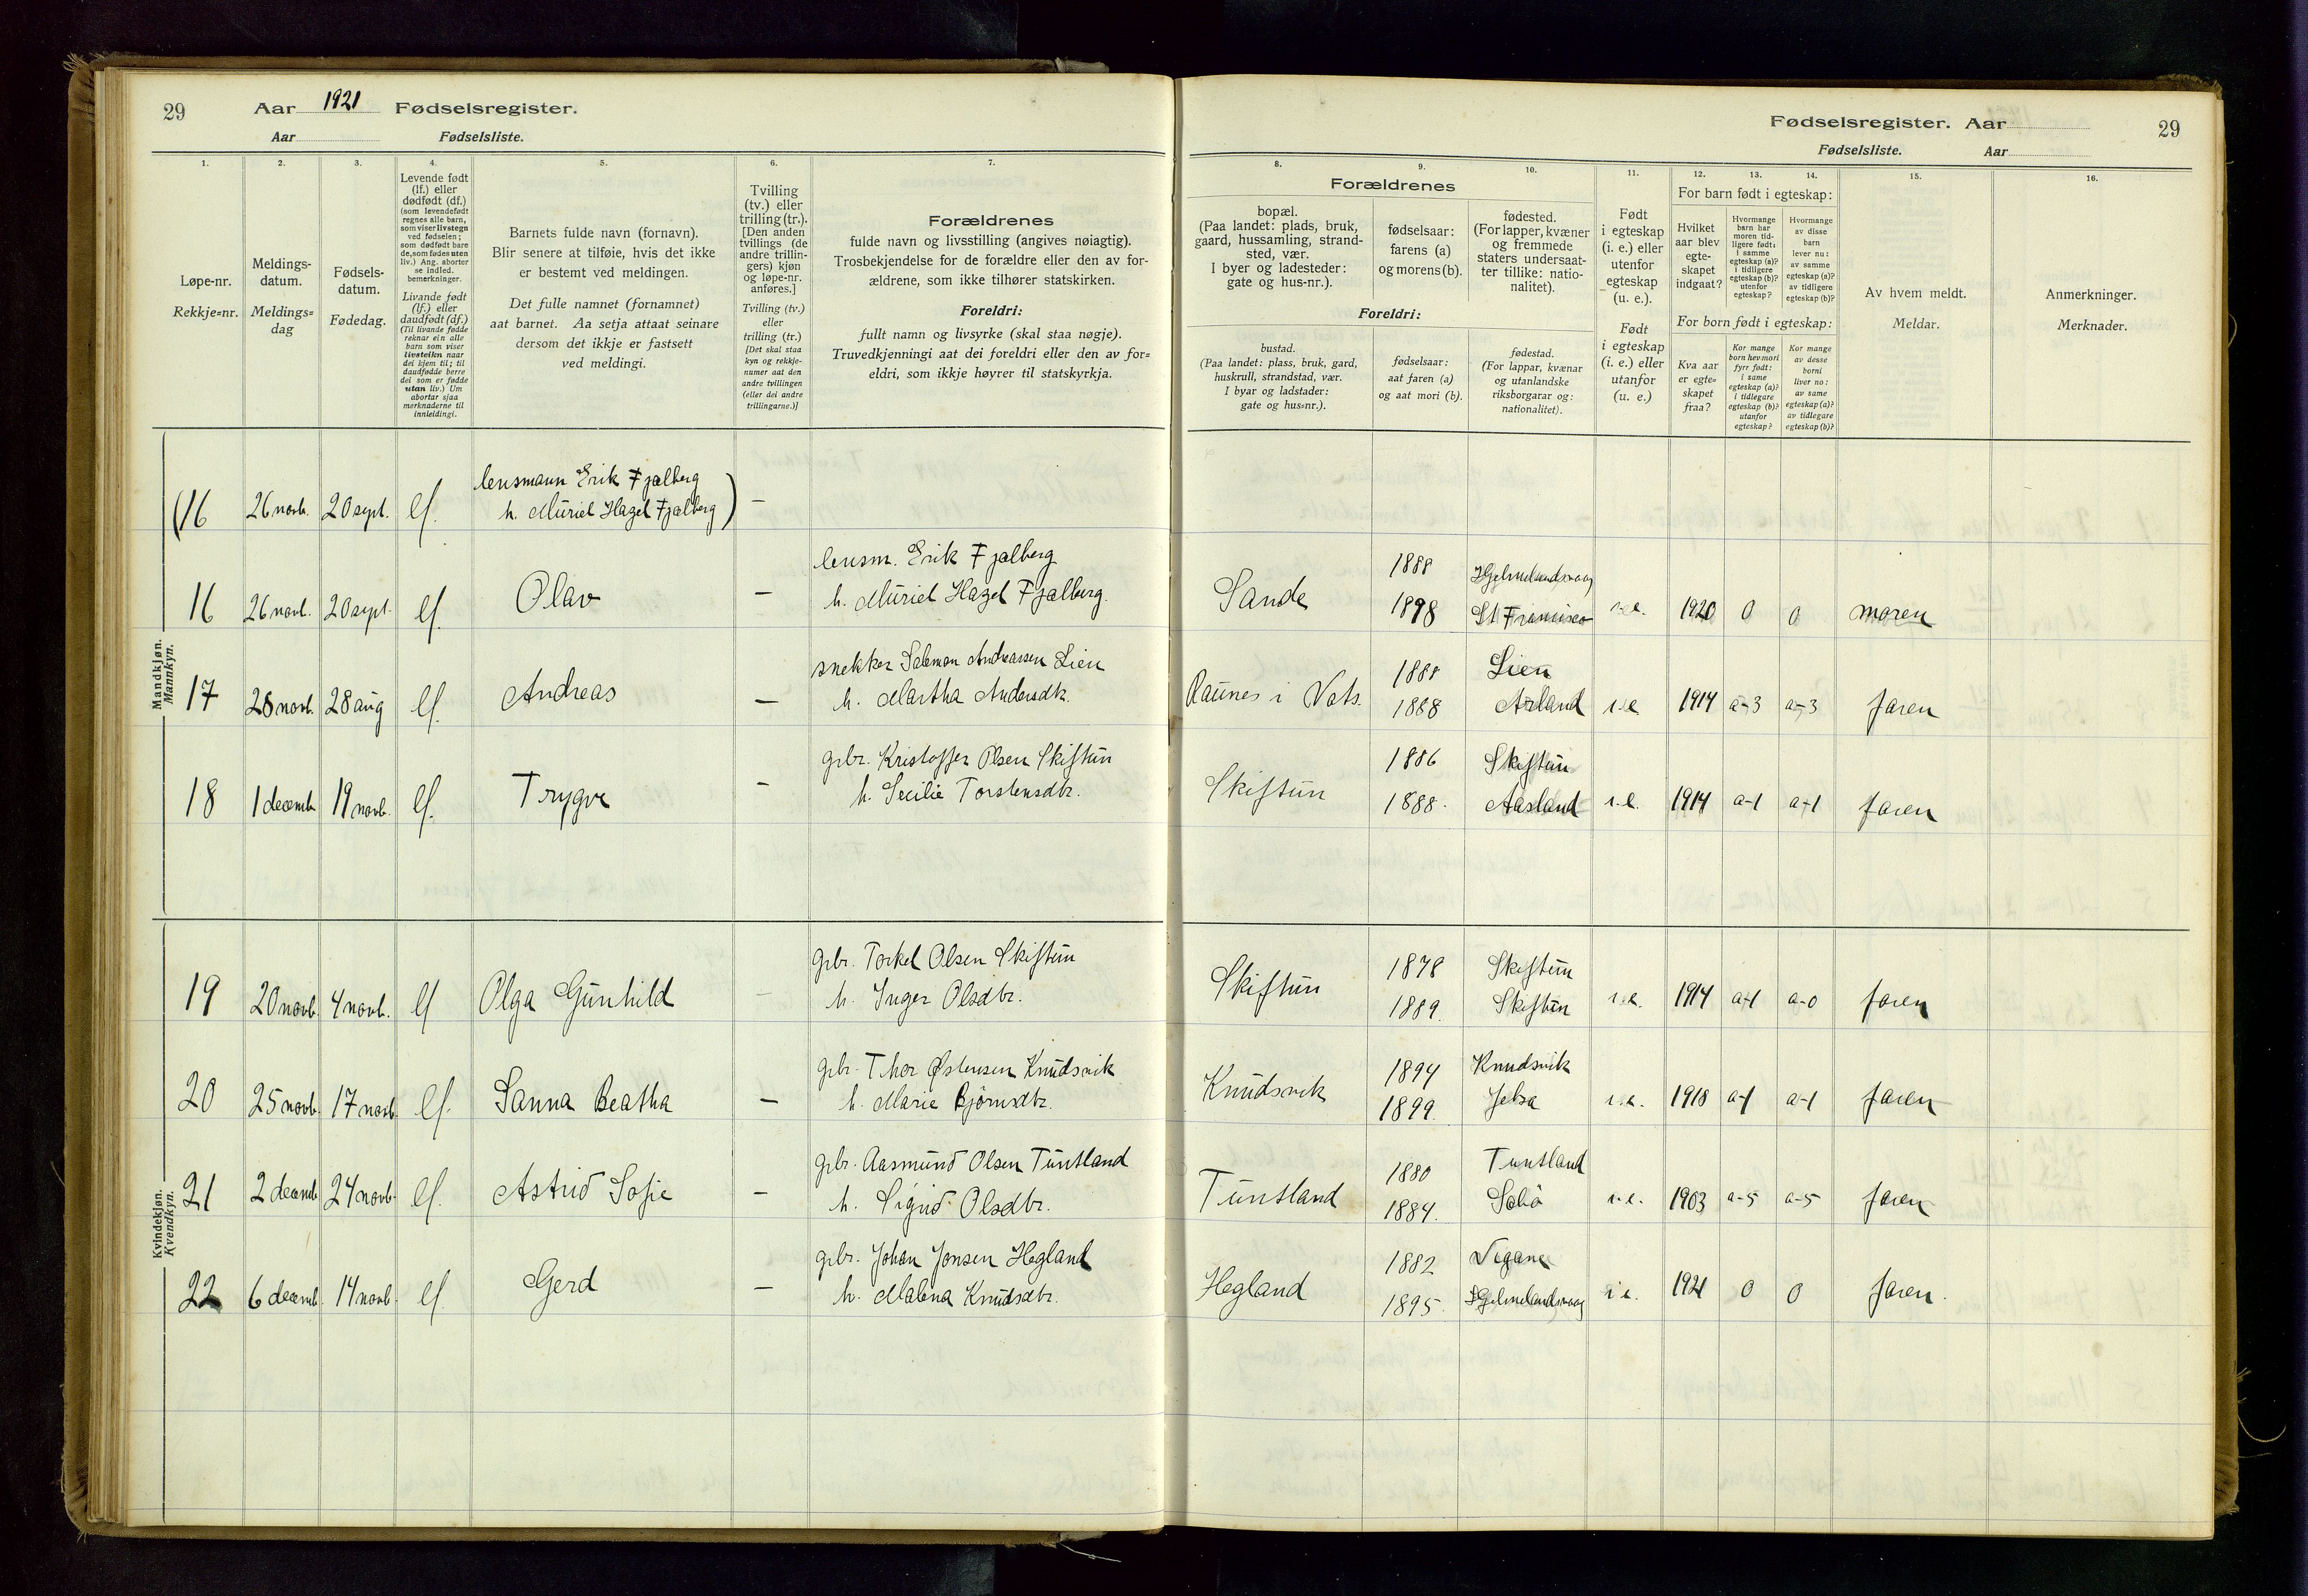 29 Aar 1921 Fødselsregister.
Aar Fødselsliste.
Fødselsregister. Aar 29
Fødselsliste. Aar
1. 2. 3. 4. 5. 6. 7. 8. 9. 10. 11. 12. 13. 14. 15. 16.
Løpe-nr.
Rekkje=nr.
Meldings-
datum.
Meldings=
dag
Fødsels-
datum.
Fødedag.
Levende født
(lf.) eller
dødfødt (df.)
(som levendefødt
regnes alle barn,
som viser livstegn
ved fødselen;
som dødfødt bare
de, som fødes uten
liv.) Ang. aborter
se indled.
bemerkninger.
Livande født
(lf.) eller
daudfødt (df.)
(Til livande fødde
reknar ein alle
barn som viser
livsteikn naar
dei kjem til; til
daudfødde berre
dei som er fødde
utan liv.) Um
abortar sjaa
merknaderne til
innleidingi.
Barnets fulde navn (fornavn).
Blir senere at tilføie, hvis det ikke
er bestemt ved meldingen.
Det fulle namnet (fornamnet)
aat barnet. Aa setja attaat seinare
dersom det ikkje er fastsett
ved meldingi.
Tvilling
(tv.) eller
trilling (tr.).
[Den anden
tvillings (de
andre trillin-
gers) kjøn
og løpe-nr.
anføres.]
Tvilling (tv.)
eller
trilling (tr.)
[Det skal staa
kyn og rekkje-
numer aat den
andre tvillingen
(eller dei andre
trillingarne.)]
Forældrenes
fulde navn og livsstilling (angives nøiagtig).
Trosbekjendelse for de forældre eller den av for-
ældrene, som ikke tilhører statskirken.
Foreldri:
fullt namn og livsyrke (skal staa nøgje).
Truvedkjenningi aat dei foreldri eller den av for=
eldri, som ikkje høyrer til statskyrkja.
Forældrenes
bopæl.
(Paa landet: plads, bruk,
gaard, hussamling, strand-
sted, vær.
I byer og ladesteder:
gate og hus-nr.).
fødselsaar:
farens (a)
og morens (b).
fødested.
(For lapper, kvæner
og fremmede
staters undersaat-
ter tillike: natio-
nalitet).
Foreldri:
bustad.
(Paa landet: plass, bruk, gard,
huskrull, strandstad, vær.
I byar og ladstader:
gate og hus=nr.).
fødselsaar:
aat faren (a)
og aat mori (b).
fødestad.
(For lappar, kvænar
og utanlandske
riksborgarar og:
nationalitet).
Født
i egteskap
(i. e.) eller
utenfor
egteskap
(u. e.).
Født
i egteskap
(i. e.) eller
utanfor
(u. e.)
For barn født i egteskap:
Hvilket
aar blev
egte-
skapet
indgaat?
Hvormange
barn har
moren tid-
ligere født:
i samme
egteskap (a)?
i tidligere
egteskap (b)?
utenfor
egteskap?
Hvormange
av disse
barn
lever nu:
av samme
egteskap (a)?
av tidligere
egteskap (b)?
For born født i egteskap:
Kva aar
er egte=
skapet
fraa?
Kor mange
born hev mori
fyrr født:
i same
egteskap (a)?
i tidlegare
egteskap (b)?
utanfor
egteskap?
Kor mange
av desse
borni
liver no:
av same
egteskap (a)?
av tidlegare
egteskap (b)?
Av hvem meldt.
Meldar.
Anmerkninger.
Merknader.
Mandkjøn.
Mannkyn.
lensmann Erik Fjælberg
(16 26 novb. 20 sept. lf. h. Muriel Hazel Fjælberg) –
lensm. Erik Fjælberg 1888 Hjelmelandsvaag
16 26 novb. 20 sept. lf. Olav – h. Muriel Hazel Fjælberg. Sande 1898 St Francisco i.e. 1920 0 0 moren
snekker Salemon Andreassen Lien 1888 Lien
17 28 novb. 28 aug lf. Andreas – h. Martha Andersdtr. Raunes i Vats. 1888 Arland i.e. 1914 a-3 a-3 faren
gbr. Kristoffer Olsen Skiftun 1886 Skiftun
18 1 decemb. 19 novb. lf. Trygve – h. Secilie Torstensdtr. Skiftun 1888. Aasland i.e. 1914 a-1 a-1 faren
Kvindekjøn.
Kvendkyn.
gbr. Torkel Olsen Skiftun 1878 Skiftun
19 20 novb. 4 novb. lf Olga Gunhild – h. Inger Olsdtr. Skiftun 1889. Skiftun i.e. 1914 a-1 a-0 faren
gbr. Thor Østensen Knudsvik 1894 Knudsvik
20 25 novb. 17 novb. lf. Sanna Beatha – h. Marie Bjørnsdtr. Knudsvik 1899. Jelsa i.e. 1918 a-1 a-1 faren
gbr. Aasmund Olsen Tuntland 1880 Tuntland
21 2 decemb. 24 novb. lf. Astrid Sofie – h. Sigrid Olsdtr. Tuntland 1884. i.e. 1903 a-5 a-5 faren
gbr. Johan Jonsen Hegland 1882 Vegane
22 6 decemb. 14 novb. lf. Gerd – h. Malena Knudsdtr. Hegland 1895. Hjelmelandsvaag i e. 1921 0 0 faren.